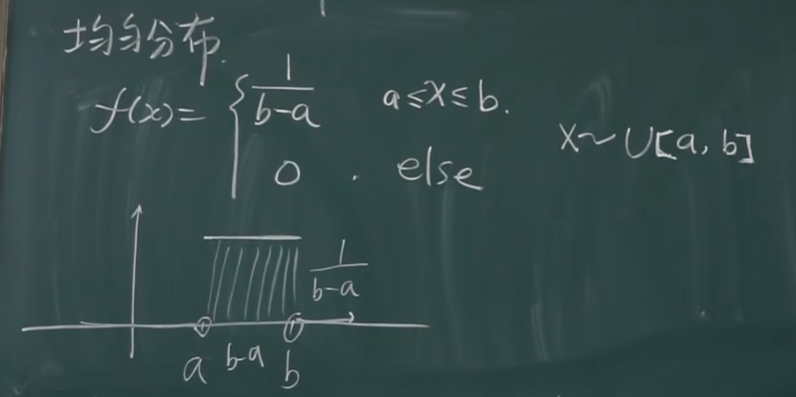 均匀分布.
f(x)= { 1/(b-a)  a≤x≤b.
0 . else
X~U[a, b]
1/(b-a)
a b-a b